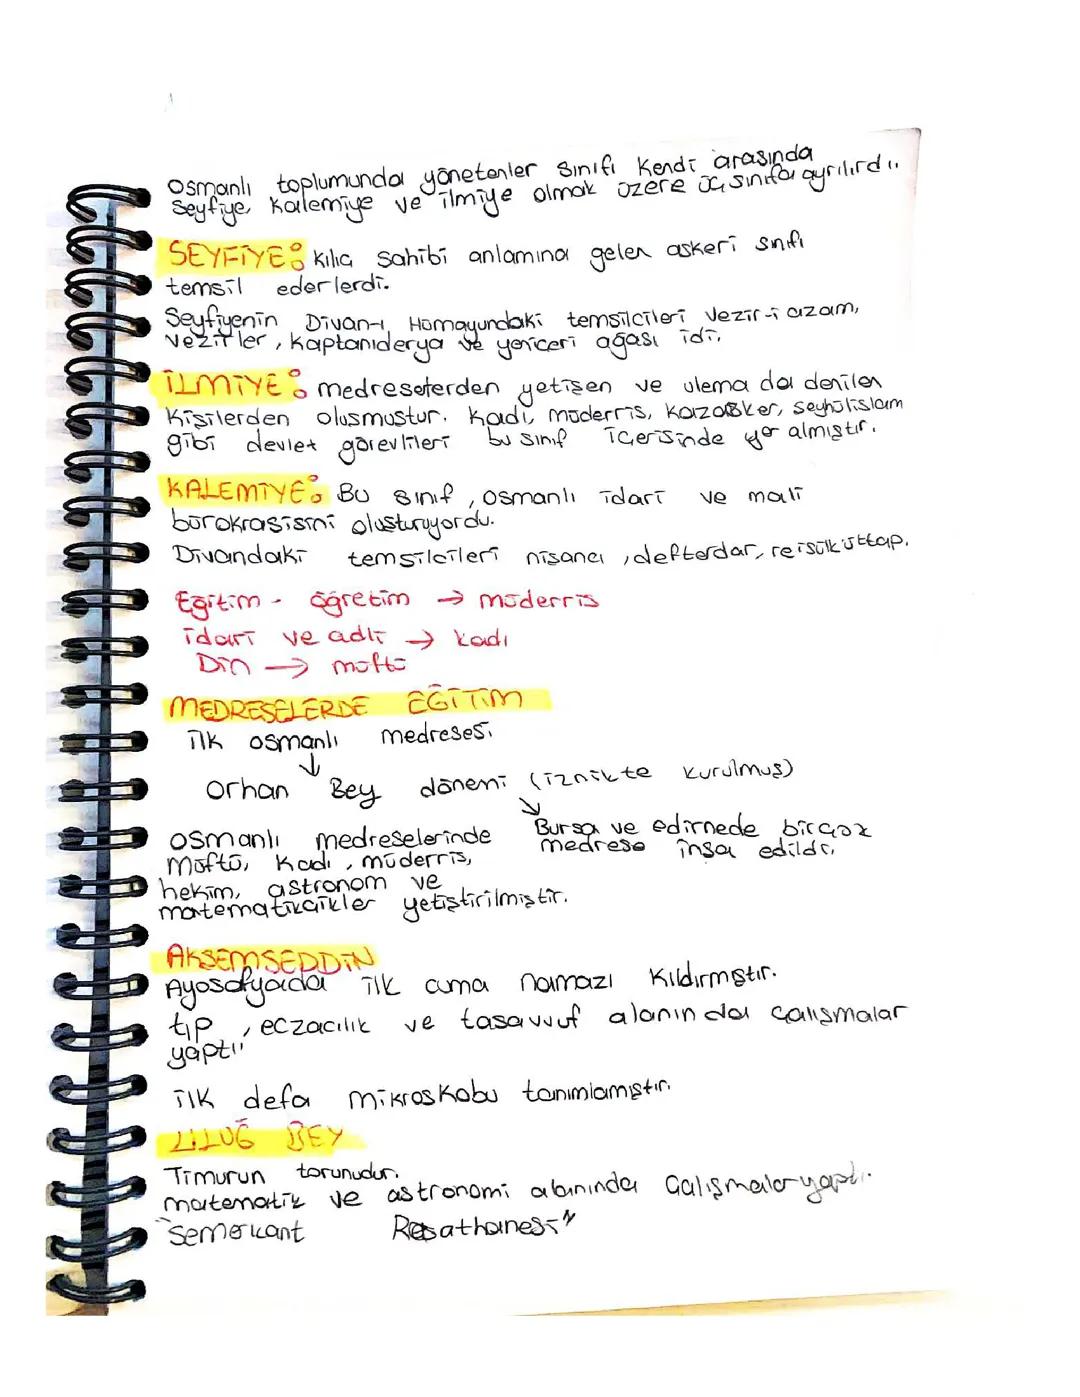 Osmanlı toplumunda yönetenler sınıfı kendi arasında
Seyfiye, kalemiye ve ilmiye olmak üzere üç sınıfa ayrılırdı.
SEYFİYE: kılıç sahibi anlamına gelen askeri sınıfı
temsil ederlerdi.
Seyfiyenin Divan-ı Hümayundaki temsilcileri Vezir-i azam,
vezirler, kaptanıderya ve yeniçeri ağası idi.
İLMİYE: medreselerden yetişen ve ulema da denilen
kişilerden oluşmuştur. Kadı, müderris, kazasker, seyhülislam
gibi devlet görevlileri bu sınıf içerisinde yer almıştır.
KALEMİYE: Bu sınıf, osmanlı idari ve mali
bürokrasisini oluşturuyordu.
Divandaki temsilcileri nişancı, defterdar, reisülküttap.
Eğitim - öğretim → müderris
idari ve adli → kadı
Din → müftü
MEDRESELERDE EĞİTİM
ilk osmanlı medresesi
↓
Orhan Bey dönemi (iznikte kurulmuş)
↓
Bursa ve edirnede birçok
medrese inşa edildi.
osmanlı medreselerinde
müftü, kadı, müderris,
hekim, astronom ve
matematikçikler yetiştirilmiştir.
AKŞEMSEDDİN
Ayasofyada ilk cuma namazı kıldırmıştır.
tıp, eczacılık ve tasavvuf alanında çalışmalar
yaptı.
ilk defa mikroskobu tanımlamıştır.
ULUĞ BEY
Timurun torunudur.
matematik ve astronomi alanında çalışmalar yaptı.
"Semerkant Rasathanesi"